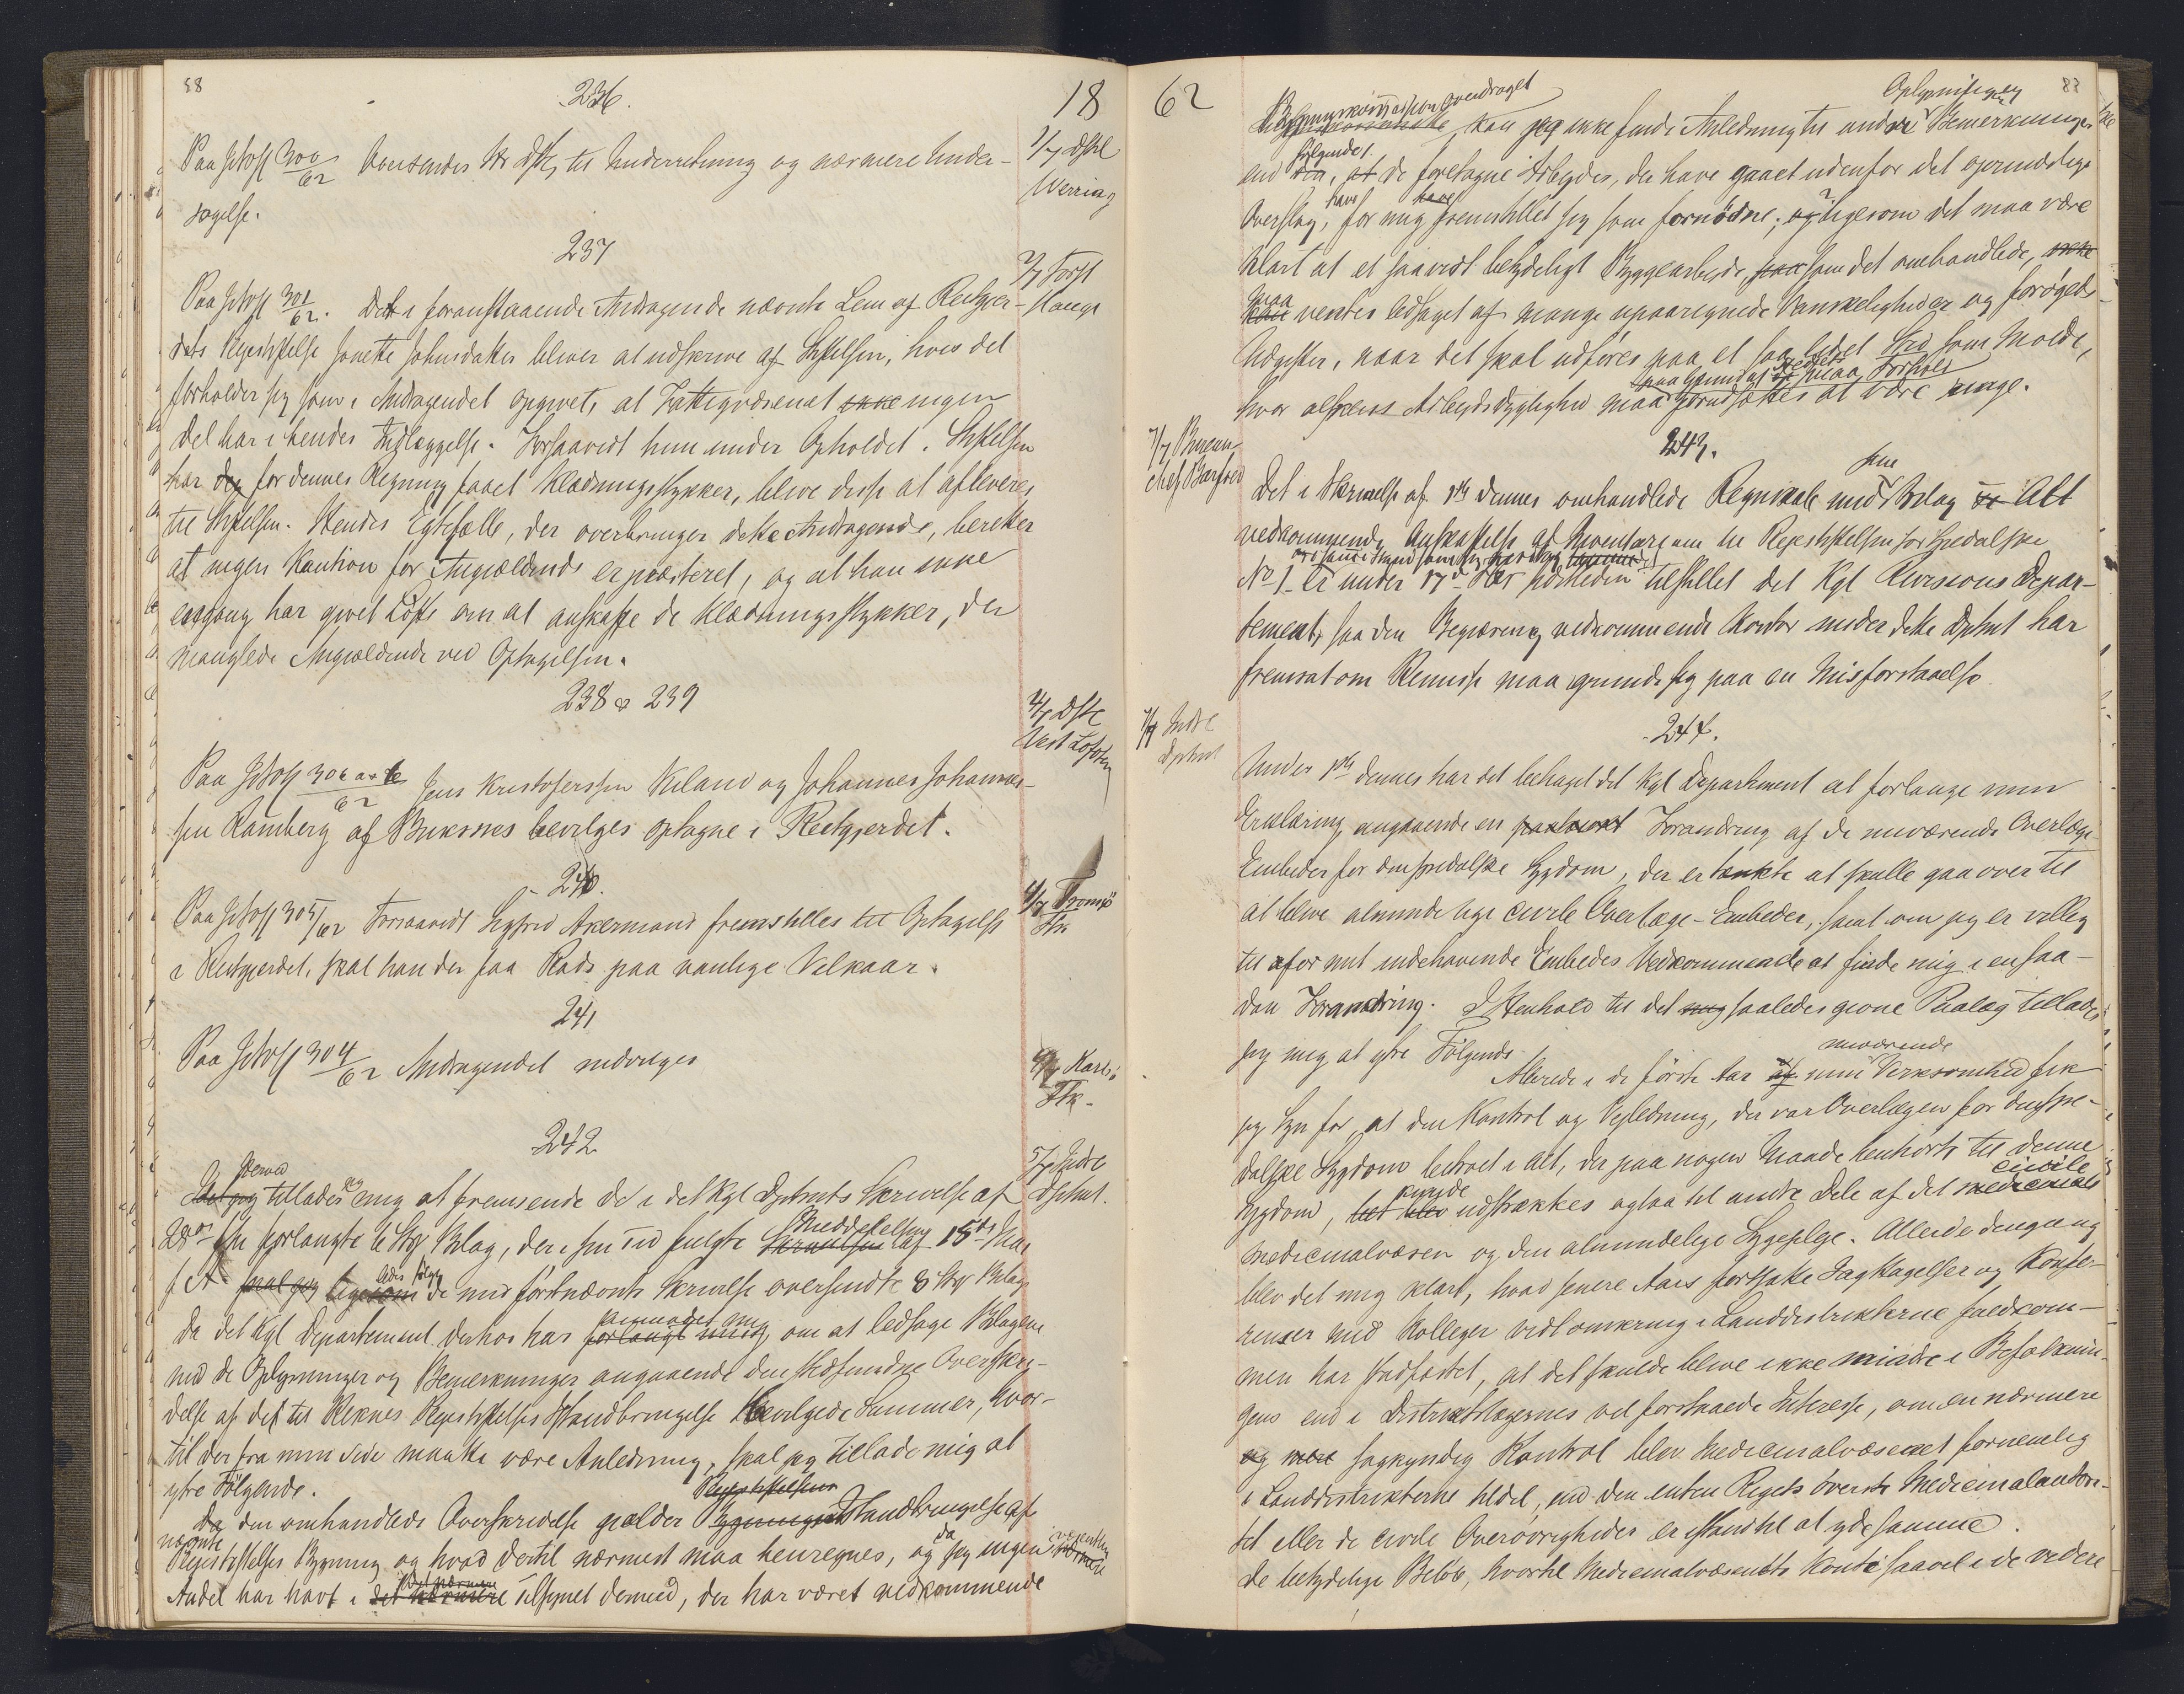 88
236.
18
Paa Jrnl 300/62 Oversendes Hr dstl til Underretning og nærmere Under-
søgelse.
2/7 dstl
Werring
237
Paa Jrnl 301/62. Det i foranstaaende Andragende nævnte Lem af Reitgjer-
dets Plejestiftelse Jonetta Johnsdatter bliver at udskrive af Stiftelsen, hvis det
forholder sig som i Andragendet opgivet, at Fattigvæsenet ikke ingen
Del har i hendes Indlæggelse. Forsaavidt hun under Opholdet i Stiftelsen
har for dennes Regning faaet Klædningsstykker, blive disse at aflevere
til Stiftelsen. Hendes Egtefælle, der overbringer dette Andragende, beretter
at ingen Kaution for Angjældende er præsteret, og at han ikke
engang har givet Løfte om at anskaffe de Klædningsstykker, der
manglede Angjældende ved Optagelsen.
238 & 239
2/7 dstl
Vest Lofoten
Paa Jrnl 302 a & b/62 Jens Kristofersen Kiland og Johannes Johannes-
sen Ramberg af Buksnes bevilges optagne i Reitgjerdet.
240.
Paa Jrnl 305/62 Forsaavidt Sigfrid Akermand fremstilles til Optagelse
i Reitgjerdet, skal han der faa Plads paa vanlige Vilkaar.
4/7 Tromsö
241
Paa Jrnl 304/62 Andragendet indvilges
4/7 Karlsö
242
5/7 Indre
Dptmt.
Herved
tillades jeg mig at fremsende de i det Kgl Dptmts Skrivelse af
28de forlangte 6 Stkr Bilag, der i sin Tid fulgte Skrivelsen Meddelelse af 15de Mai
f A. skal jeg ligesom de med förstnævnte Skrivelse oversendte 8 Stkr Bilag
Da det Kgl Departement derhos har forlangt anmodet mig om at ledsage Bilagene
med de Oplysninger og Bemerkninger angaaende den stedfundne Overskri-
delse af det til Reknes Plejestiftelses Istandbringelse bevilgede Summer, hvor-
til der fra min Side maatte være Anledning, skal jeg tillade mig at
ytre Følgende.
Da den omhandlede Overskridelse gjælder Plejestiftelsens Bygningens Istandbringelse af
nævnte
Plejestiftelses Bygning og hvad dertil nærmest maa henregnes, og da jeg ingen væsentlig
Andel har havt i det nærmere Tilsynet dermed, der har været vedkommende
62
83
Bygningskommission overdraget
kan jeg ikke finde Anledning til andre Oplysninger og Bemerkninger
end følgende: at de foretagne Arbejder, der have gaaet udenfor det oprindelige
Overslag, have for mig fremstillet sig som fornödne; og ligesom det maa være
klart at et saavidt betydeligt Byggearbejde som det omhandlede, ikke
kan maa ventes ledsaget af mange upaaregnede Vanskeligheder og forögede
Udgifter, naar det skal udføres paa et saa lidet Sted som Molde,
hvor alskens Arbejdsdygtighed paa Grund af Stedets smaa Forhold maa forudsættes at være ringe.
243.
7/7 Bureau-
chef Barfoed
Det i Skrivelse af 1ste dennes omhandlede Regnskab med sine Bilag Alt
vedkommende Anskaffelse af Inventarium til Plejestiftelsen for spedalske
No 1 er under 17de tilstillet det Kgl Revisions Depar-
tement, saa den Begjæring vedkommende Kontor under dette Dptmt har
fremsat om Remisse maa grunde sig paa en Misforstaaelse.
244.
7/7 Indre
Dptmt
Under 1ste dennes har det behaget det Kgl Departement at forlange min
Erklæring angaaende en paatænkt Forandring af de nuværende Overlæge-
Embeder for den spedalske Sygdom, der er tænkte at skulle gaa over til
at blive almindelige civile Overlæge-Embeder, samt om jeg er villig
til for mit indehavende Embedes Vedkommende at finde mig i en saa-
dan Forandring. I Henhold til det mig saaledes givne Paalæg tillader
jeg mig at ytre Følgende.
Allerede i de förste Aar af min nuværende Virksomhed fik
jeg Syn for, at den Kontrol og Vejledning, der var Overlægen for den spe-
dalske Sygdom betroet i Alt, der paa nogen Maade henhörte til denne
Sygdom, kunde udstrækkes ogsaa til andre Dele af det medicinale civile
Medicinalvæsen og den almindelige Sygepleje. Allerede dengang
blev det mig klart, hvad senere Aars fortsatte Iagttagelser og Konfe-
renser med Kolleger vidt omkring i Landdistrikterne fuldkom-
men har stadfæstet, at det skulde blive ikke mindre i Befolknin-
gens end i Distriktslægernes vel forstaaede Interesse, om en nærmere
og mere sagkyndig Kontrol blev Medicinalvæsenet fornemlig
i Landdistrikterne tildel, end den enten Rigets överste Medicinalautori-
tet eller de civile Overøvrigheder er istand til at yde samme.
De betydelige Belöb, hvortil Medicinalvæsenets Konti saavel i de videre